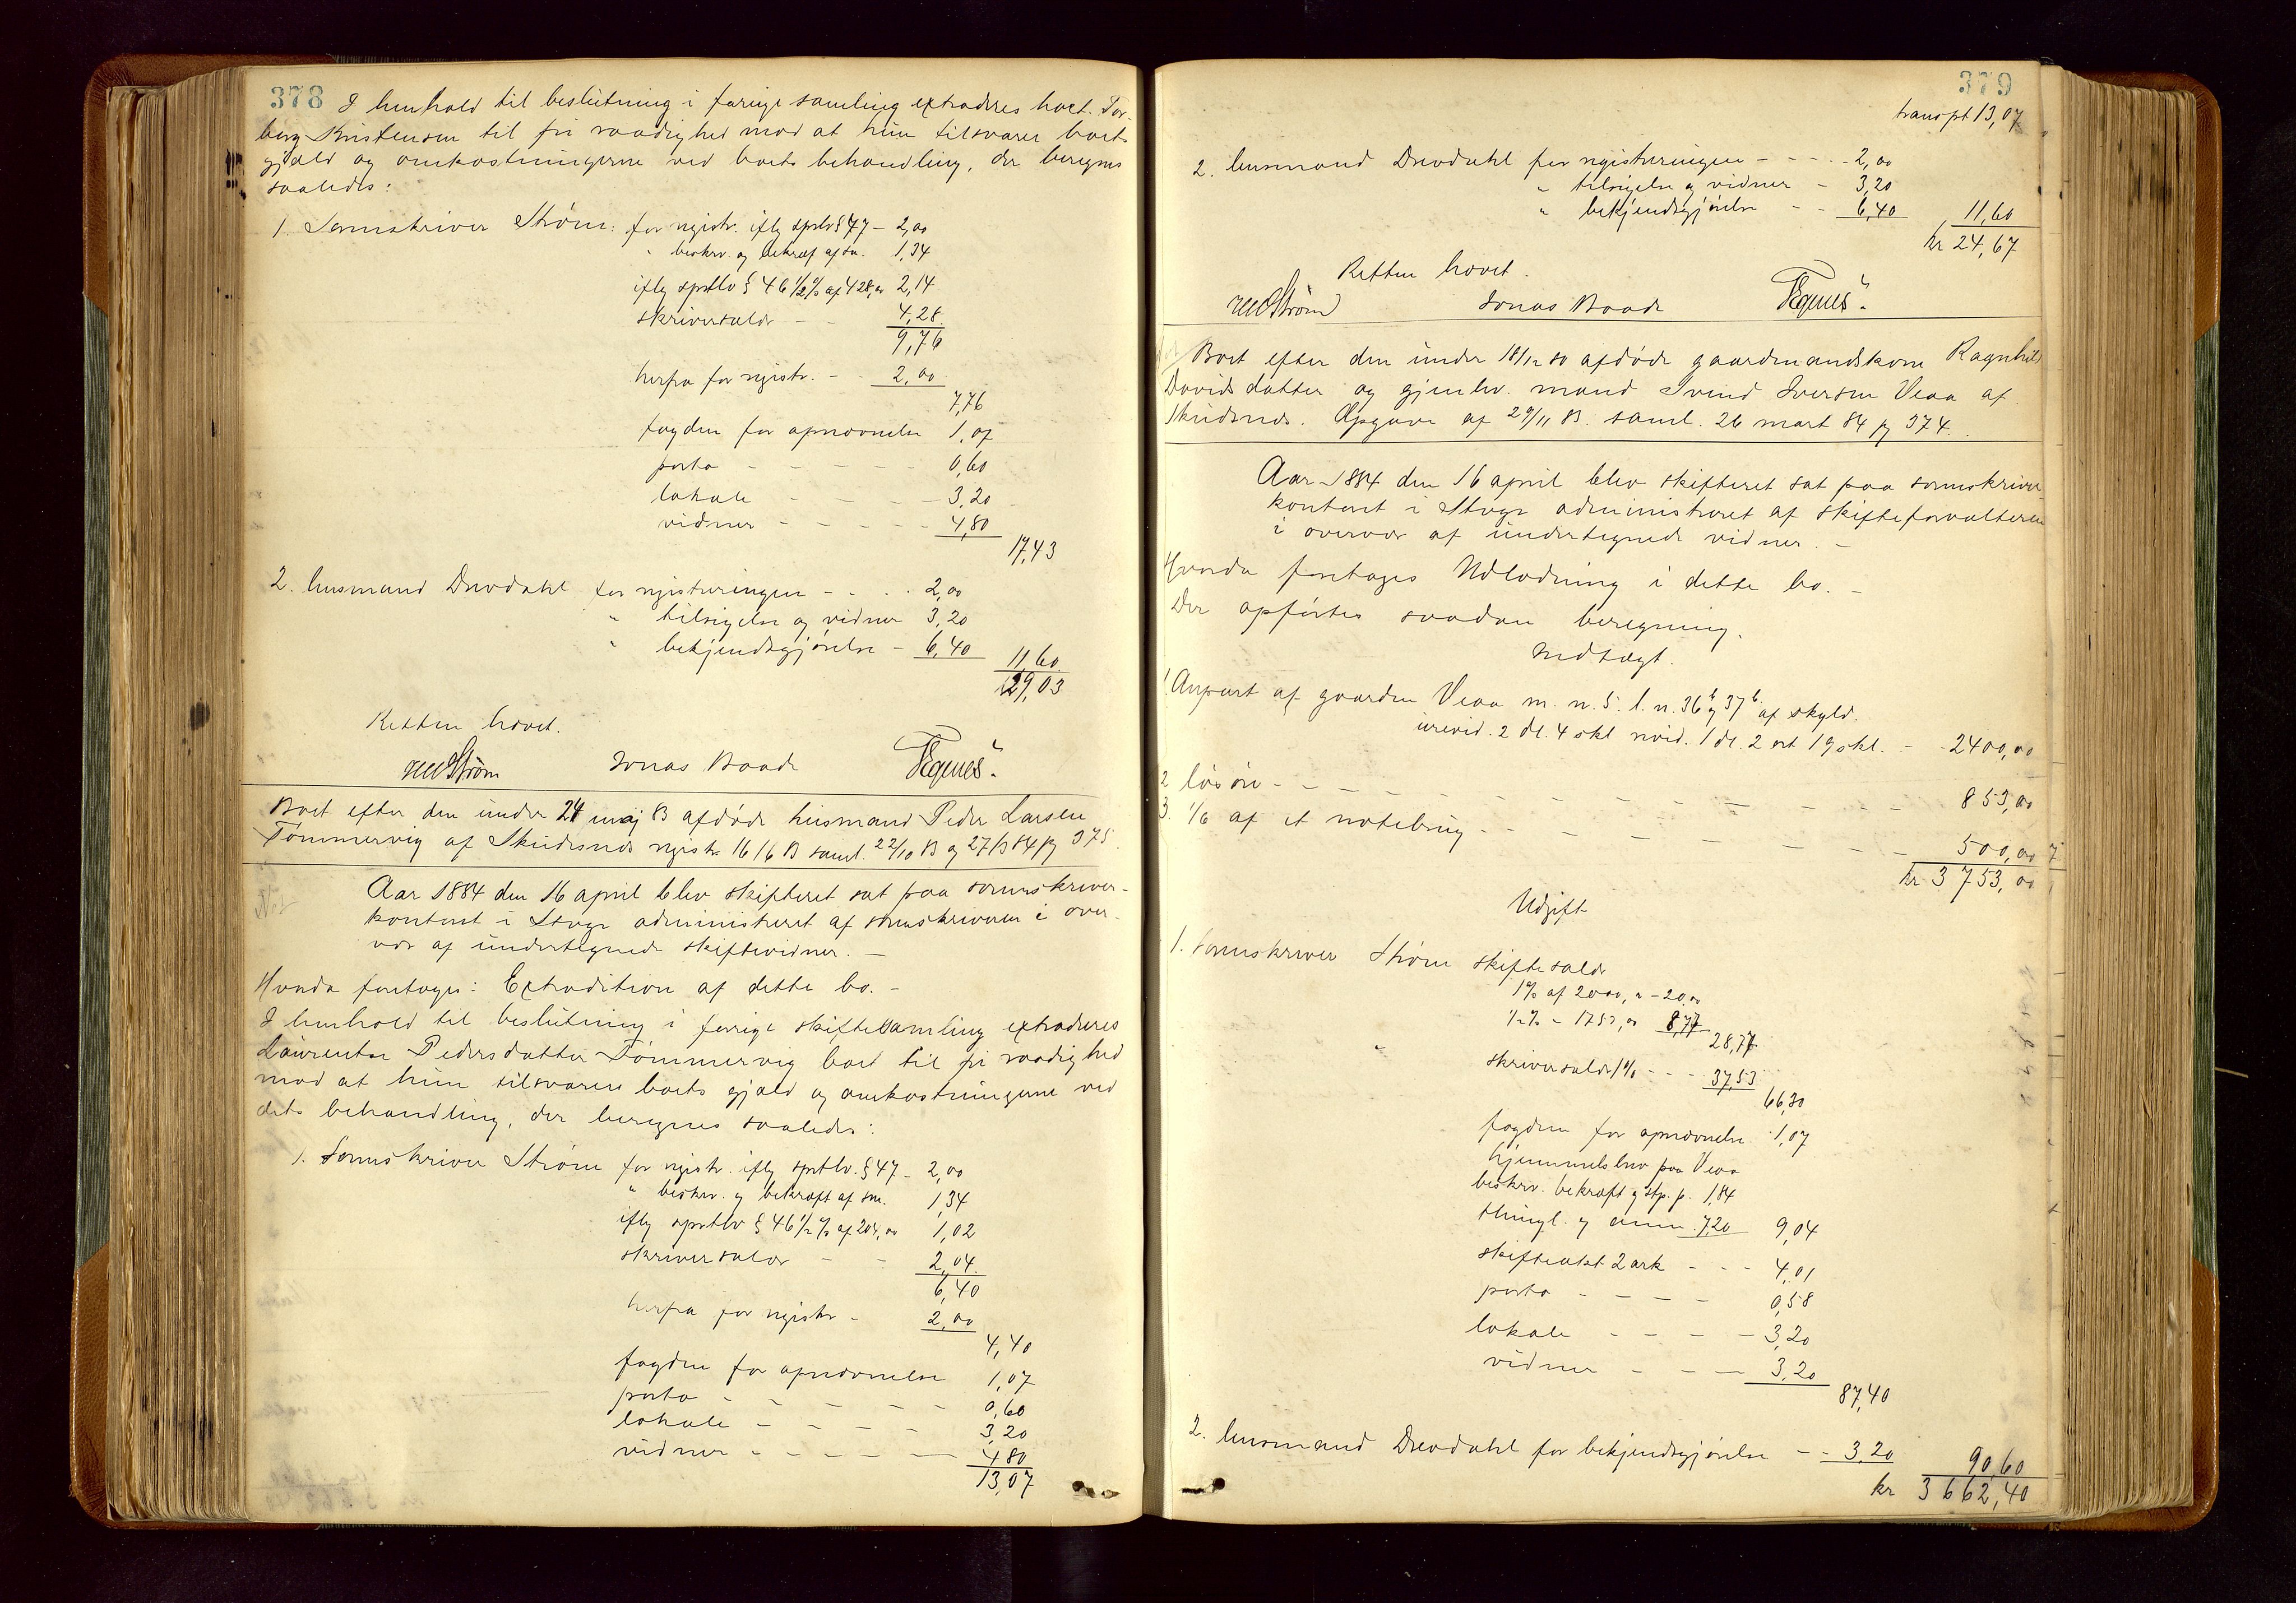 378
I henhold til beslutning i forrige samling extraderes boet. Tor-
borg Kristensen til fri raadighed mod at hun tilsvarer boets
gjæld og omkostningerne ved boets behandling, der beregnes
saaledes:
1. Sorenskriver Strøm: for registr. iflg sprtlv § 47 – 2,00
" beskrv. og bekræf af do. 1,34
iflg sprtlv § 46 1/2 % af 428,00 2,14
skriversalær – – 4,28
9,76
herfra for registr. – – 2,00
7,76
fogden for opnævnelse 1,07
porto – – – – – 0,60
lokale – – – 3,20
vidner – – – – – 4,80
17,43
2. lensmand Drevdahl for registreringen – – . . 2,00
" tilsigelse og vidner 3,20
" bekjendtgjørelse – 6,40
11,60
29,03
Retten hævet.
Strøm Jonas Baade TEgnes.
Boet efter den under 24 maj 83 afdøde husmand Peder Larsen
Tømmervig af Skudesnes registr. 16/6 83 saml. 22/10 83 og 27/3 84 pg 375.
Aar 1884 den 16 april blev skifteret sat paa sorenskriver-
kontoret i Stoge administreret af sorenskriveren i over-
vær af undertegnede skiftevidner. –
Hvorda foretoges: Extradition af dette bo. –
I henhold til beslutning i forrige skiftesamling extraderes
Laurentse Pedersdatter Tømmervig boet til fri raadighed
mod at hun tilsvarer boets gjæld og omkostningerne ved
dets behandling, der beregnes saaledes:
1. Sorenskriver Strøm for registr. iflg sprtlv. § 47 – 2,00
" beskrv. og bekræft af sm. 1,34
iflg sprtlv § 46 1/2 % af 204,00 1,02
skriversalær – – 2,04
6,40
herfra for registr – 2,00
4,40
fogden for opnævnelse 1,07
porto – – – – – – 0,60
lokale – – – – – 3,20
vidner – – – – – – 4,80
13,07
379
transpt 13,07
2. lensmand Drevdahl for registreringen – – – . . 2,00
" tilsigelse og vidner – 3,20
" bekjendtgjørelse – – 6,40 11,60
kr 24,67
Retten hævet.
Strøm Jonas Baade TEgnes.
Boet efter den under 18/12 80 afdøde gaardmandskone Ragnhild
Davidsdatter og gjenlev. mand Svend Iversen Veaa af
Skudesnes. Opgave af 29/11 83. saml. 26 mart 84 pg 374.
Aar 1884 den 16 april blev skifteret sat paa sorenskriver-
kontoret i Stoge administreret af skifteforvalteren
i overvær af undertegnede vidner. –
Hvorda foretoges Udlodning i dette bo. –
Der opførtes saadan beregning.
Indtægt.
1. Anpart af gaarden Veaa m. n. 5. l. n. 36b og 37b af skyld.
urevid. 2 dl. 4 skl revid. 1 dl. 2 ort 19 skl. – – 2400,00
2 løsøre – – – – – – – – – – – – – 853,00
3. 1/6 af et notebrug – – – – – – – – 500,00
kr 3753,00
Udgift
1. Sorenskriver Strøm skiftesalær
1% af 2000,00 – 20,00
1/2 % – 1753,00 8,77
28,77
" skriversalær 1% – – – 37,53
66,30
fogden for opnævnelse 1,07
hjemmelsbrev paa Veaa
beskriv. bekræft og stp. p. 1,84
thingl. og anm. 7,20 9,04
skifteakt 2 ark – – – 4,01
porto – – – – 0,58
lokale – – – – 3,20
vidner – – – 3,20
87,40
2. lensmand Drevdahl for bekjendtgjørelse – – 3,20 90,60
kr 3662,40